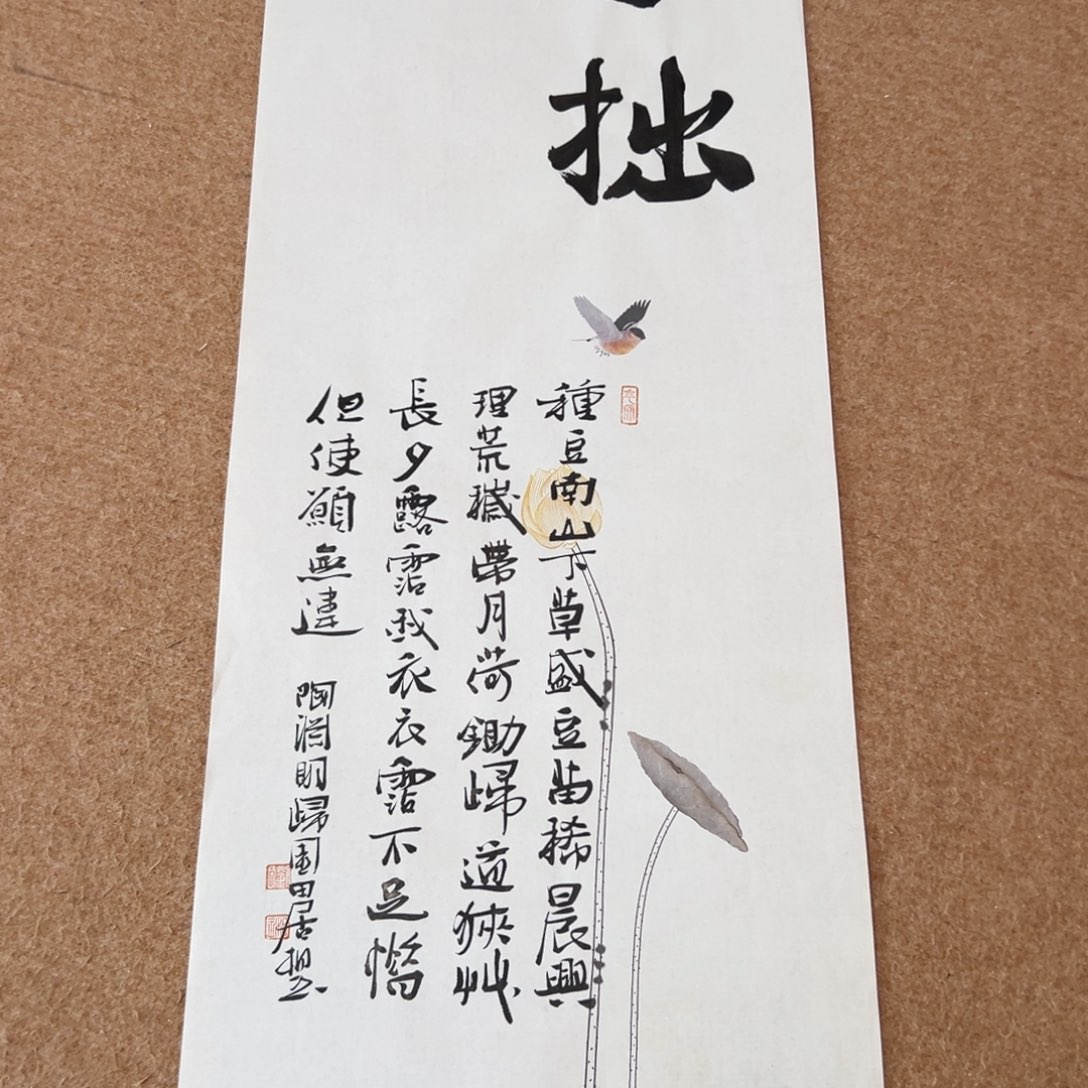 拙
種豆南山下草盛豆苗稀晨興
理荒穢帶月荷鋤歸道狹艸
長夕露霑我衣衣霑不足惜
但使願無違 陶淵明歸園田居